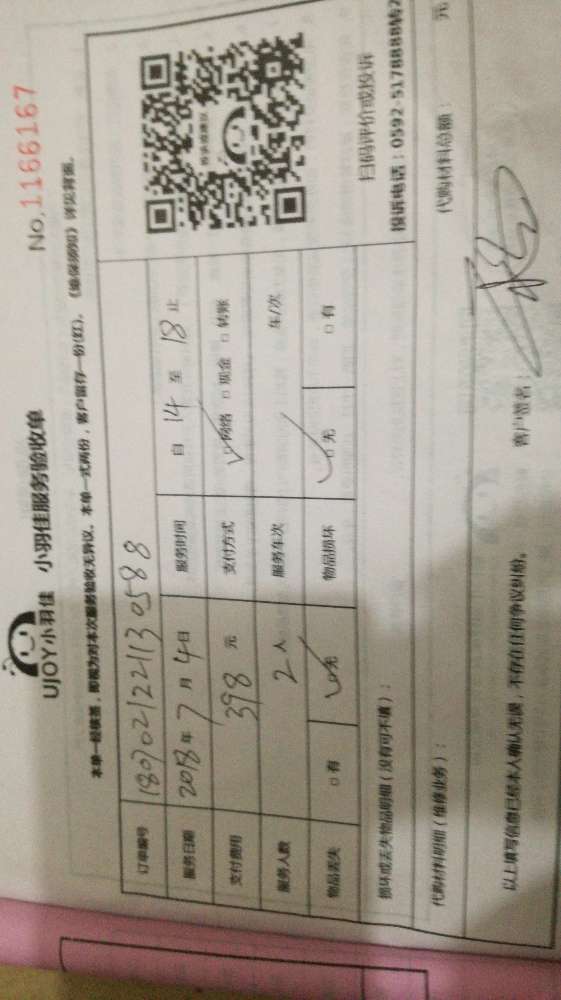 UJOY小羽佳 小羽佳服务验收单 No.1166167
本单一经核签，即视为对本次服务验收无异议。本单一式两份，客户留存一份(红)。《维保须知》详见背面。
订单编号 180702122113 0588
服务日期 2018年7月4日 服务时间 自14至18止
支付费用 398元 支付方式 ☑网络 □现金 □转账
服务人数 2人 服务车次 / 车/次
物品丢失 □有 ☑无 物品损坏 ☑无 □有
扫码评价或投诉
投诉电话：0592-5178888转2
损坏或丢失物品明细（没有可不填）：
代购材料明细（维修业务）： 代购材料总额： 元
以上填写信息已经本人确认无误，不存在任何争议纠纷。 客户签名：